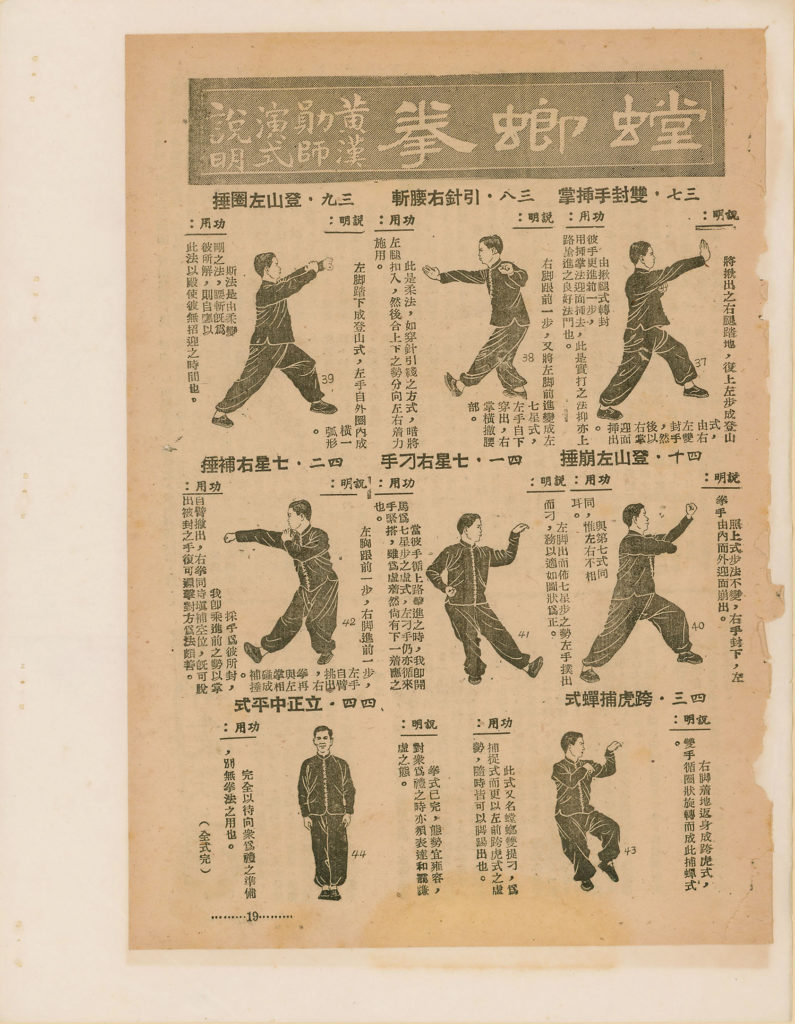 螳螂拳
黃漢
勛師
演式
說明
三七・雙封手揷掌
說明：
將撳出之右腿踏地，復上左步成登山
式，
由右
左雙
封手
，然
後以
右掌
迎面
揷出
37
功用：
由揪腿式轉封
彼手更進前一步，
用揷掌法迎面揷去，此是實打之法抑亦上
路搶進之良好法門也。
三八・引針右腰斬
說明：
右脚跟前一步，又將左脚前進變成左
七星式，
左手自下
穿出，右
掌橫撇腰
部。
38
功用：
此是柔法，如穿針引綫之方式，暗將
左腿扣入，然後合上下之勢分向左右着力
施用。
三九・登山左圈捶
說明：
左脚踏下成登山式，左手自外圈內成
橫一
弧形
。
39
功用：
斯法是由柔變
剛之法，腰斬旣爲
彼所解，則自應以
此法以殿使彼無招迎之時間也。
四十・登山左崩捶
說明：
照上式步法不變，右手封下，左
拳手由內而外迎面崩出。
40
功用：
與第七式同
同，惟左右不相
耳。
四一・七星右刁手
說明：
左脚出而佈七星步之勢左手撲出
而刁，務以適如圖狀爲正。
41
功用：
當彼手循上路擊進之時，我卽開
馬爲七星步之虛式，左刁手仍亦循來
手緊搭，雖爲虛着然尙有下一着應之
也。
四二・七星右補捶
說明：
左脚跟前一步，右脚進前一步，
左手
自臂
挑出
，右
拳再
與左
掌相
碰成
補捶
42
功用：
採手爲彼所封，
我卽乘進前之勢以掌
自臂撇出，右拳同時塡補空位，旣可脫
出被封之手復可還擊對方爲法頗善。
四三・跨虎捕蟬式
說明：
右脚着地返身成跨虎式，
雙手循圈狀旋轉而成此捕蟬式
。
43
功用：
此式又名螳螂雙捉刁，爲
捕捉式而更以左前跨虎式之虛
勢，隨時皆可以脚踢出也。
四四・立正中平式
說明：
拳式已完，態勢宜雍容，
對衆爲禮之時亦須表達和靄謙
虛之態。
44
功用：
完全以待向衆爲禮之準備
，別無拳法之用也。
（全式完）
………19………